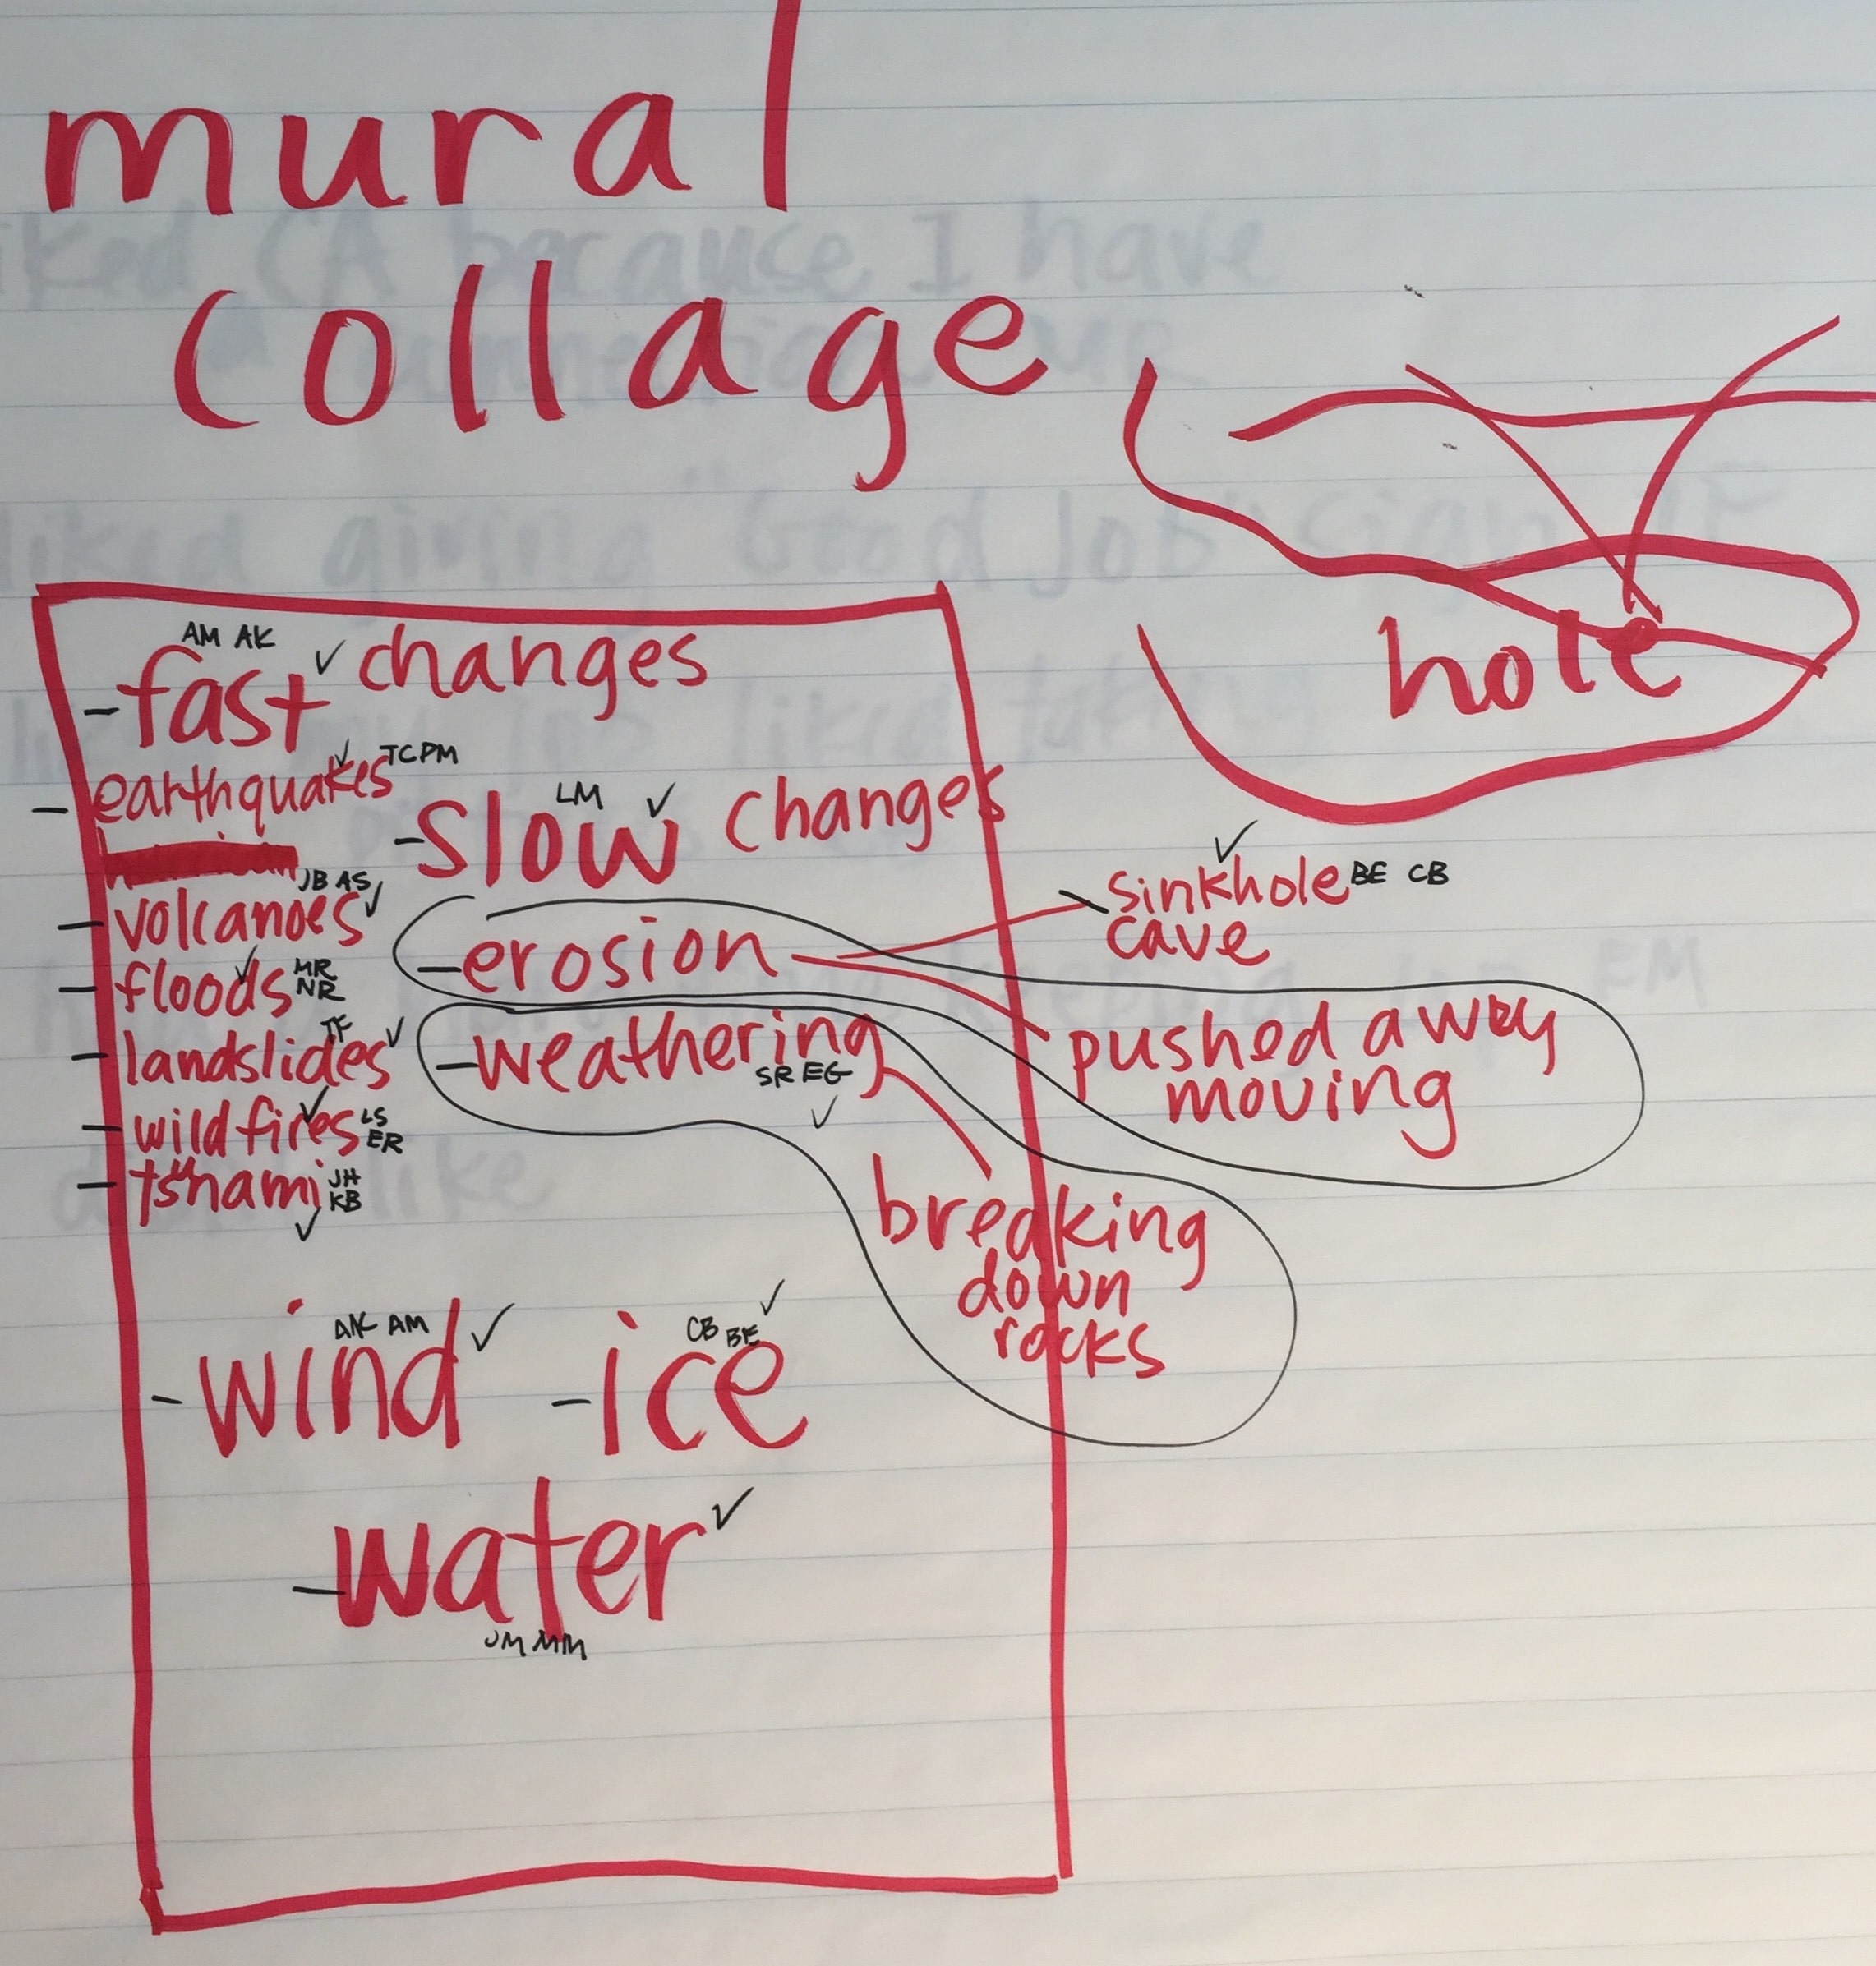 mural
collage
hole
AM AK
-fast ✓ changes
- earthquakes ✓ TCPM
-slow LM ✓ changes
- volcanoes JB AS ✓
- floods ✓ MR NR
- landslides TF ✓
- wildfires ✓ LS ER
- tsnami JH KB ✓
- erosion
- sinkhole ✓ BE CB
cave
pushed away
moving
- weathering
SR EG ✓
breaking
down
rocks
- wind AK AM ✓
- ice CB BE ✓
- water ✓
JM MM